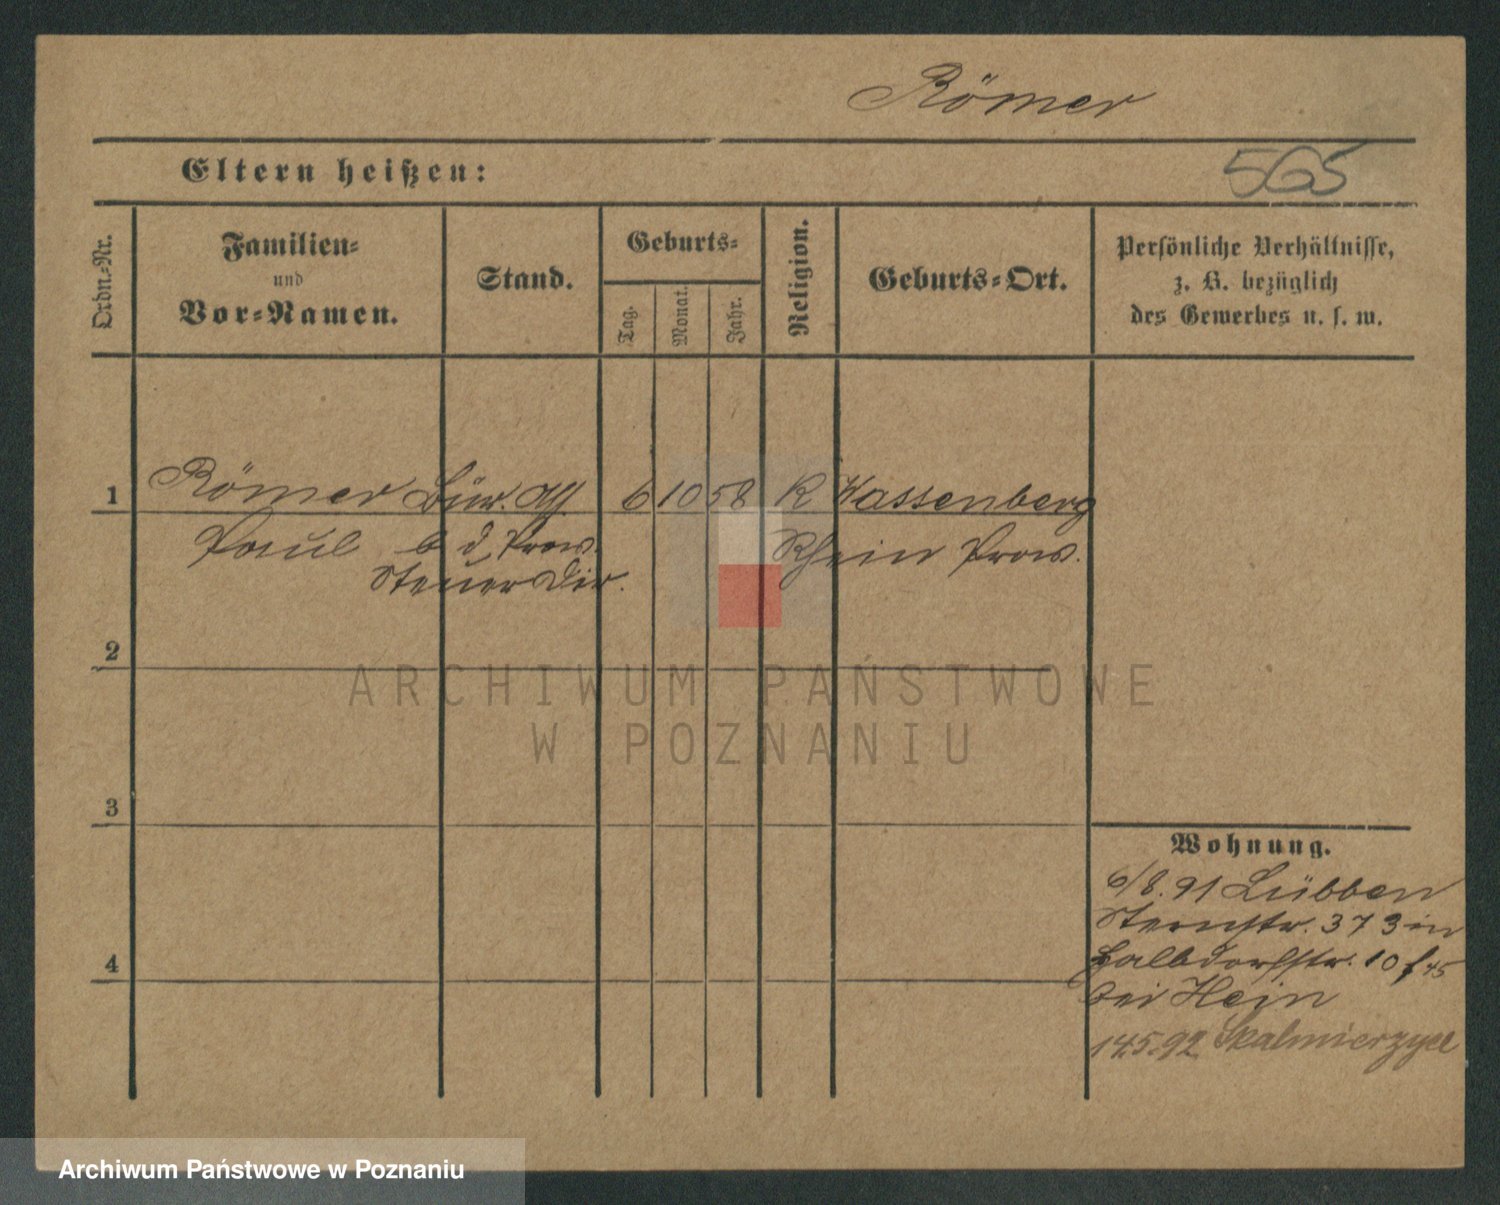 Römer
Eltern heißen:
565
Ordn.-Nr.
Familien-
und
Vor-Namen.
Stand.
Geburts-
Tag.
Monat.
Jahr.
Religion.
Geburts-Ort.
Persönliche Verhältnisse,
z. B. bezüglich
des Gewerbes u. s. w.
1 Römer Bür. 6 10 58 K Wassenberg
Paul b d. Prov. Rhein Prov.
Steuer Dir.
2
3
4
Wohnung.
6/8.91 Lübben
Sternstr. 373 in
Halbdorfstr. 10
bei Hein
14.5.92 Skalmierzyce
ARCHIWUM PAŃSTWOWE
W POZNANIU
Archiwum Państwowe w Poznaniu